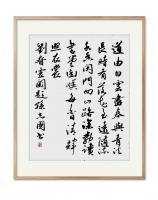 道由白雲盡春與青溪
長時有落花至遠隨流
水香閑門向山路深柳讀
書堂幽映每白日清輝
照衣裳
劉昚虛闕題孫